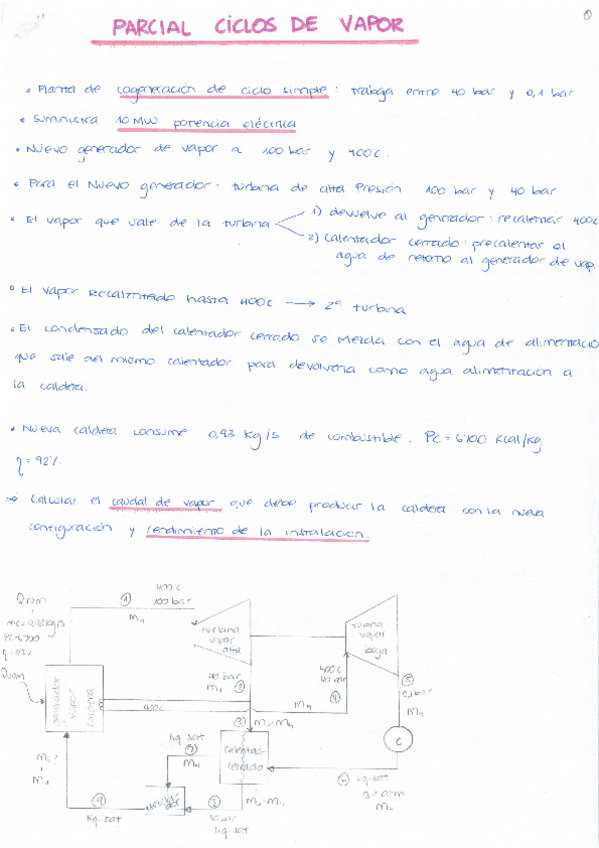 PARCIAL CICLOS DE VAPOR
• Planta de cogeneración de ciclo simple : trabaja entre 40 bar y 0,1 bar
• Suministra 10 MW potencia eléctrica
• Nuevo generador de vapor a 100 bar y 400C.
• Para el Nuevo generador : turbina de alta Presión 100 bar y 40 bar
• El vapor que sale de la turbina
1) devuelve al generador : recalentar 400C
2) Calentador cerrado : precalentar el
agua de retorno al generador de vap.
• El vapor Recalentado hasta 400C → 2ª turbina
• El condensado del calentador cerrado se Mezcla con el agua de alimentacio
que sale del mismo calentador para devolverla como agua alimentación a
la caldera.
• Nueva caldera consume 0,93 kg/s de combustible. PC = 6700 Kcal/kg
η = 92%
⇒ Calcular el caudal de vapor que debe producir la caldera con la nueva
configuración y rendimiento de la instalación.
400C
① 100 bar
m₁
PC=6700
η=92%
turbina
vapor
alta
turbina
vapor
baja
generador
vapor
caldera
40 bar
②
400C
400C
40 bar
④
m₄
③
⑤
0,1 bar
m₄
C
Calentador
cerrado
liq. sat
m₄
liq. sat
⑨
liq. sat